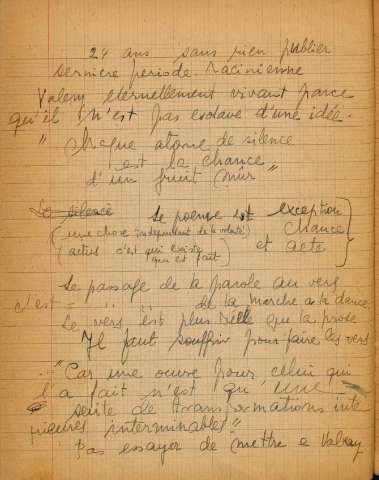 24 ans sans rien publier
Derniere periode. Racinienne
Valery eternellement vivant parce
qu'il n'est pas esclave d'une idée.
" Chaque atome de silence
est la chance
d'un fruit mûr"
Le silence Le poeme est exception
(une chose independent de la volonté) chance
(actus c'est qui existe et acte
qui est fait)
Le passage de la parole au vers
c'est = " " de la marche a la danse
Le vers est plus que la prose
Il faut souffrir pour faire les vers
"Car une oeuvre pour celui qui
l'a fait n'est qu'une
suite de transformations inte
rieures interminables"
Pas essayer de mettre a Valery